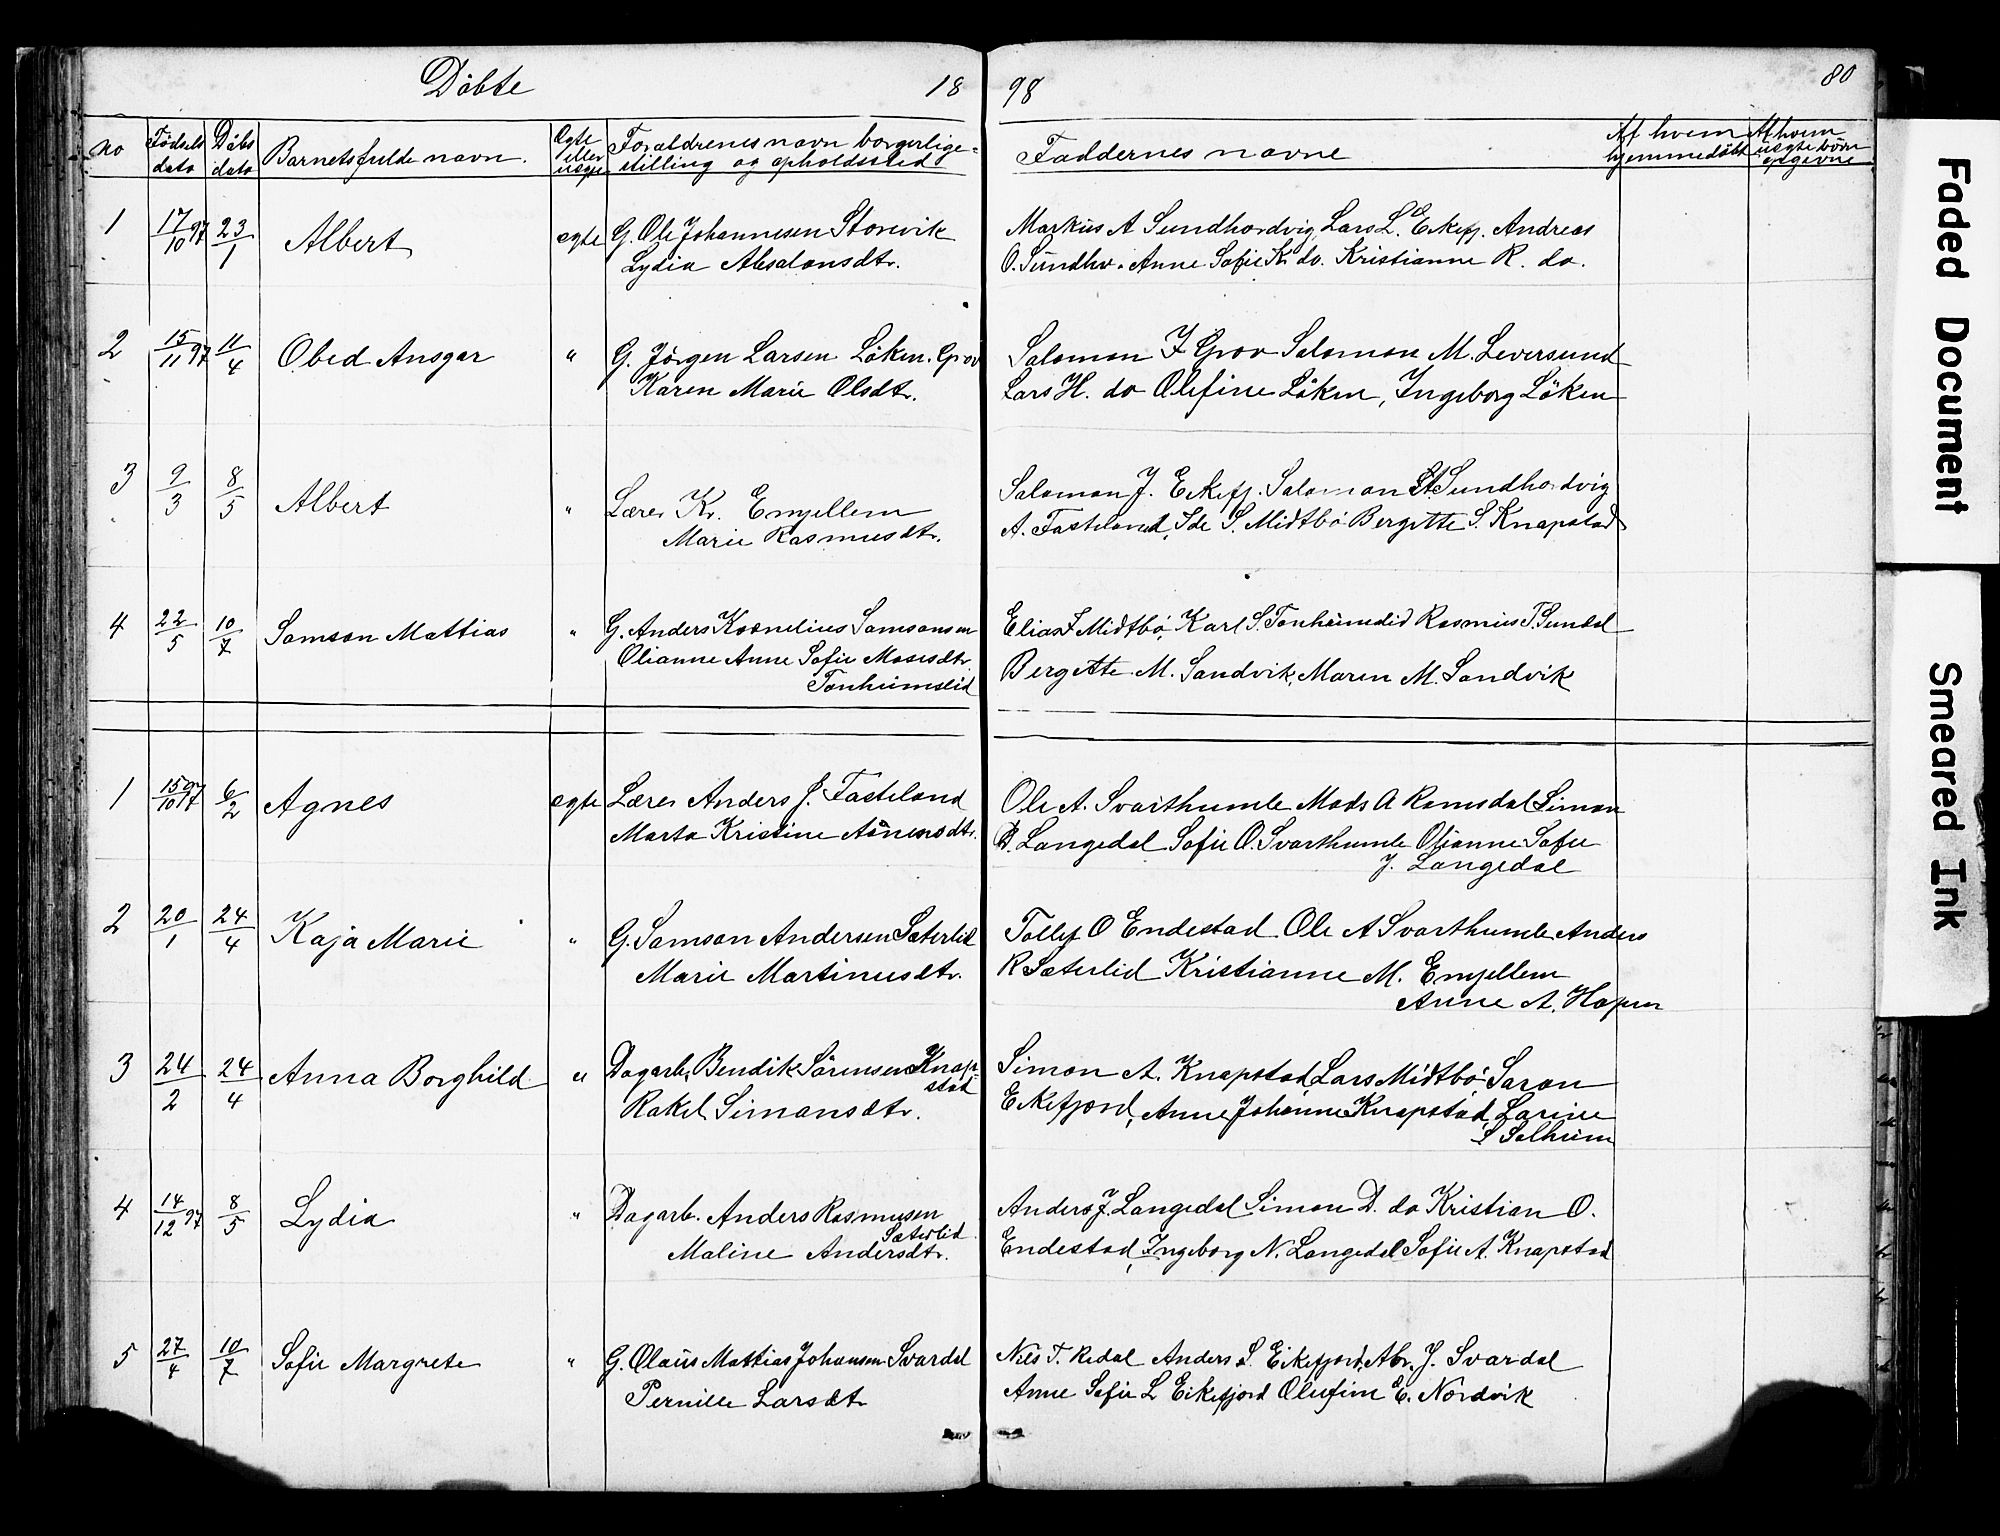 Døbte 18 98 80
No Fødsels dato Døbs dato Barnets fulde navn. Egte eller uegte Forældrenes navn borgerlige stilling og opholdssted Faddernes navne Af hvem hjemmedøbt Af hvem uegte børn opgivne
1 17/10 97 23/1 Albert egte G. Ole Johannesen Storevik Markus A Sundhordvig, Lars L. Eikefj. Andreas
Lydia Absalonsdtr. O. Sundho. Anne Sofie K. do. Kristianne R. do.
2 15/11 97 11/4 Obed Ansgar " G. Jørgen Larsen Løken. Grov Salomon J Grov Salomon M. Leversund
Karen Marie Olsdtr. Lars H. do Olefine Løken, Ingeborg Løken
3 9/3 8/5 Albert " Lærer Kr. Engellem Salomon J. Eikefj. Salomon Sundhordvig
Marie Rasmusdtr. A. Fasteland, Ide S. Midtbø Bergitte S. Knapstad
4 22/5 10/7 Samson Mattias " G. Anders Kornelius Samsonsen Elias F Midtbø, Karl S. Tonheimslid Rasmus T. Sundal
Olianne Anne Sofie Mosesdtr. Bergitte M. Sandvik, Maren M. Sandvik
Tonheimslid
1 15/10 97 6/2 Agnes egte Lærer Anders J. Fasteland Ole A. Svarthumle Mads A Ramsdal Simon
Marta Kristine Asnesdtr. D. Langedal Sofie O. Svarthumle Olianne Sofie
J. Langedal
2 20/1 24/4 Kaja Marie " G. Samson Andersen Sæterlid Tollef O Endestad Ole A Svarthumle Anders
Marie Martinusdtr. R Sæterlid Kristianne M. Engellem
Anne A. Hopen
3 24/2 24/4 Anna Borghild " Dagarb. Bendik Sørensen Knap- Simon A. Knapstad Lars Midtbø Saron
stad
Rakel Simonsdtr. Eikefjord, Anne Johanne Knapstad, Larine
S Solheim
4 14/12 97 8/5 Lydia " Dagarb. Anders Rasmusen Anders J. Langedal Simon D. do Kristian O.
Sæterlid
Maline Andersdtr. Endestad, Ingeborg N. Langedal Sofie A. Knapstad
5 27/4 10/7 Sofie Margrete " G. Olaus Mattias Johansen Svardal Nils T. Redal Anders S. Eikefjord, Abr. J. Svardal
Pernille Larsdtr Anne Sofie L Eikefjord Olufine E. Nordvik
Faded Document
Smeared Ink